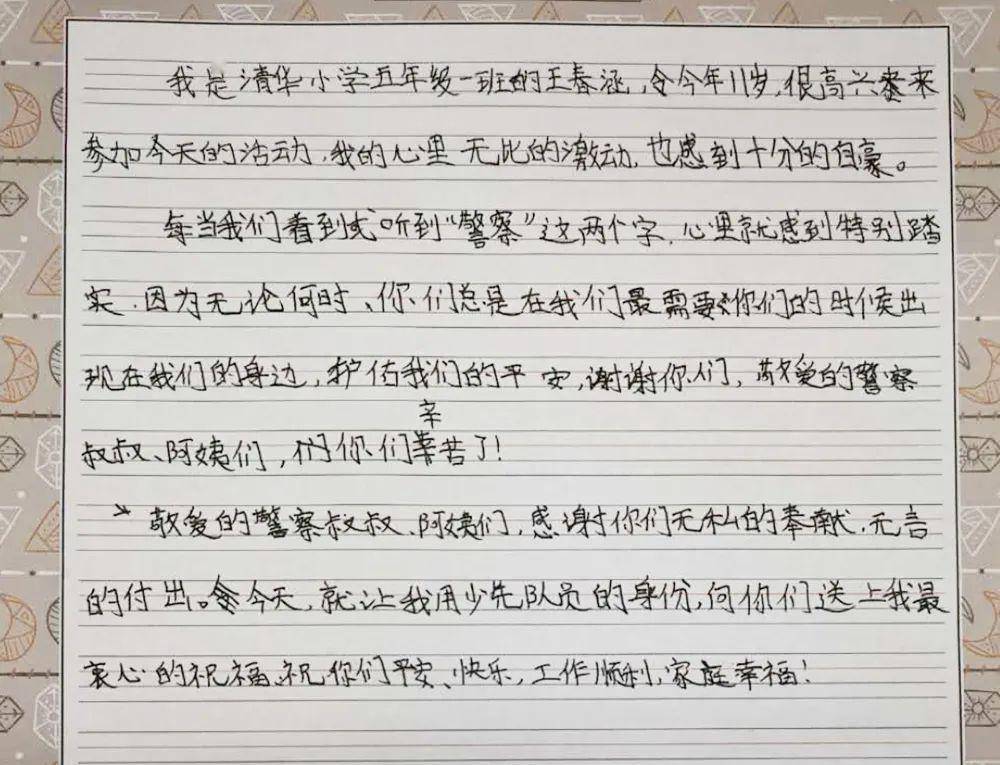 我是清华小学五年级一班的王春涵,今年11岁,很高兴来
参加今天的活动,我的心里无比的激动,也感到十分的自豪。
每当我们看到或听到“警察”这两个字,心里就感到特别踏
实,因为无论何时、你们总是在我们最需要你们的时候出
现在我们的身边,护佑我们的平安,谢谢你们,敬爱的警察
叔叔、阿姨们,你们辛苦了!
敬爱的警察叔叔、阿姨们,感谢你们无私的奉献,无言
的付出。今天,就让我用少先队员的身份,向你们送上我最
衷心的祝福、祝你们平安、快乐,工作顺利,家庭幸福!